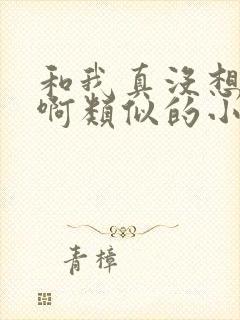 和我真没想
啊类似的小
青樟